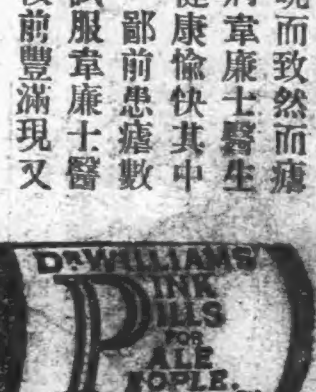 而致然而瘧
韋廉士醫生
健康愉快其中
鄙前患瘧數
試服韋廉士醫
前豐滿現又
DR WILLIAMS
PINK
PILLS
FOR
PALE
PEOPLE